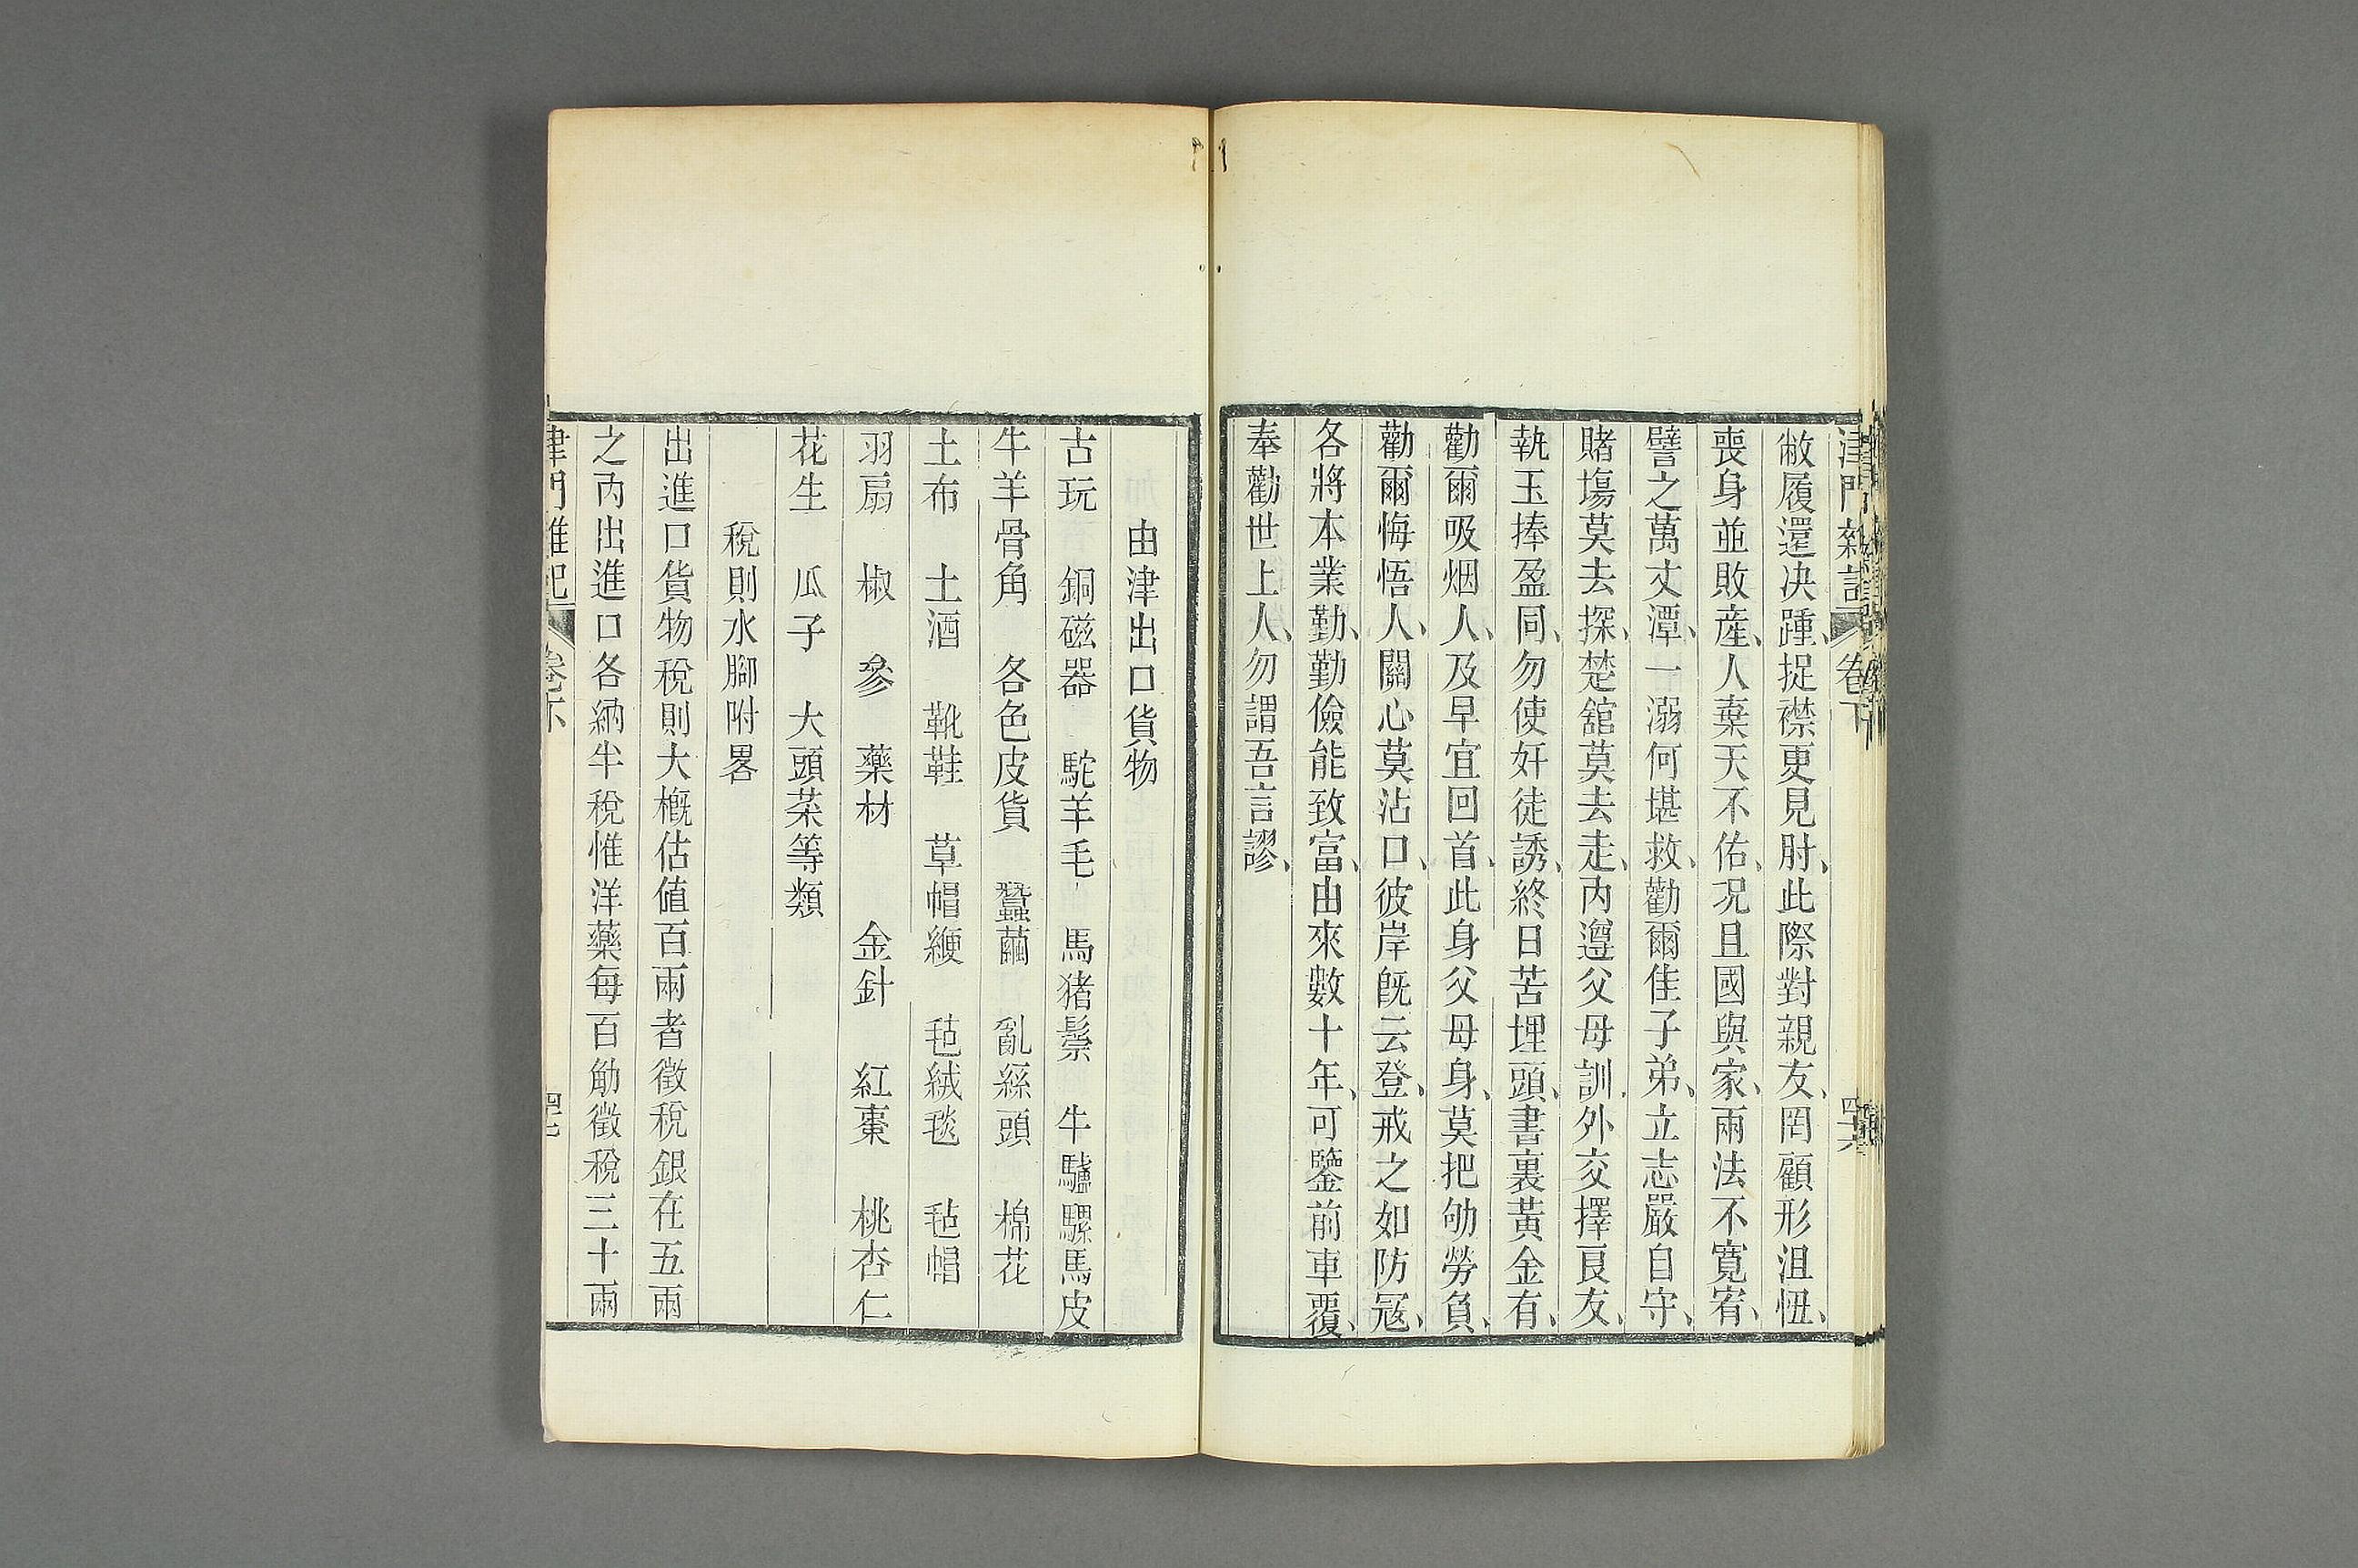 津門雜記 卷下 四十六
敝履還决踵、捉襟更見肘、此際對親友、罔顧形沮忸、
喪身並敗產、人棄天不佑、況且國與家、兩法不寬宥、
譬之萬丈潭、一溺何堪救、勸爾佳子弟、立志嚴自守、
賭塲莫去探、楚舘莫去走、內遵父母訓、外交擇良友、
執玉捧盈同、勿使奸徒誘、終日苦埋頭、書裏黃金有、
勸爾吸烟人、及早宜回首、此身父母身、莫把劬勞負、
勸爾悔悟人、關心莫沾口、彼岸旣云登、戒之如防寇、
各將本業勤、勤儉能致富、由來數十年、可鑒前車覆、
奉勸世上人、勿謂吾言謬、
由津出口貨物
古玩 銅磁器 駝羊毛 馬猪鬃 牛驢騾馬皮
牛羊骨角 各色皮貨 蠶繭 亂絲頭 棉花
土布 土酒 靴鞋 草帽緶 毡絨毯 毡帽
羽扇 椒 參 藥材 金針 紅棗 桃杏仁
花生 瓜子 大頭菜等類
稅則水腳附畧
出進口貨物稅則大槪估値百兩者徵稅銀在五兩
之內出進口各納半稅惟洋藥每百觔徵稅三十兩
津門雜記 卷下 四十七